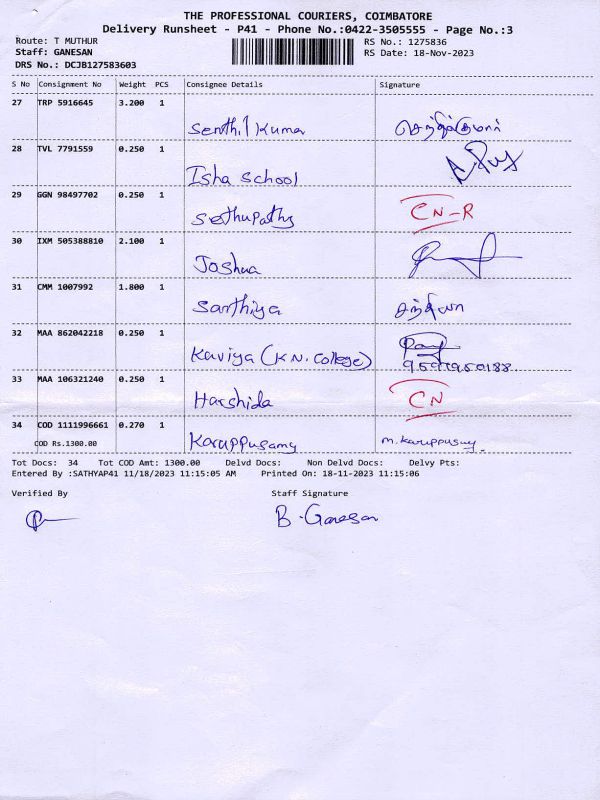 THE PROFESSIONAL COURIERS, COIMBATORE
Delivery Runsheet - P41 - Phone No.:0422-3505555 - Page No.:3
Route: T MUTHUR RS No.: 1275836
Staff: GANESAN RS Date: 18-Nov-2023
DRS No.: DCJB127583603
S No Consignment No Weight PCS Consignee Details Signature
27 TRP 5916645 3.200 1
Senthil Kumar செந்தில்குமார்
28 TVL 7791559 0.250 1
Isha School
29 GGN 98497702 0.250 1
Sethupathy CN-R
30 IXM 505388810 2.100 1
Joshua
31 CMM 1007992 1.800 1
Santhiya சந்தியா
32 MAA 862042218 0.250 1
Kaviya (K.N. College)
33 MAA 106321240 0.250 1
Harshida CN
34 COD 1111996661 0.270 1
COD Rs.1300.00 Karuppusamy M. Karuppusamy
Tot Docs: 34 Tot COD Amt: 1300.00 Delvd Docs: Non Delvd Docs: Delvy Pts:
Entered By :SATHYAP41 11/18/2023 11:15:05 AM Printed On: 18-11-2023 11:15:06
Verified By Staff Signature
B. Ganesan